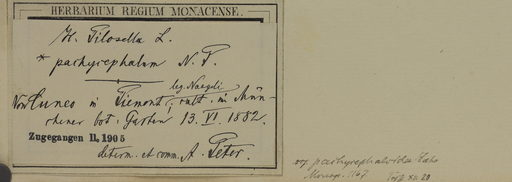 HERBARIUM REGIUM MONACENSE.
H. Pilosella L.
* pachycephalum N. P.
leg. Naegeli
Von Cuneo in Piemont; cult. in Mün-
chener bot. Garten 13. VI. 1882.
Zugegangen II. 1905
determ. et comm. A. Peter.
pachycephaloides Zahn
Monogr. 1167
XII. 29